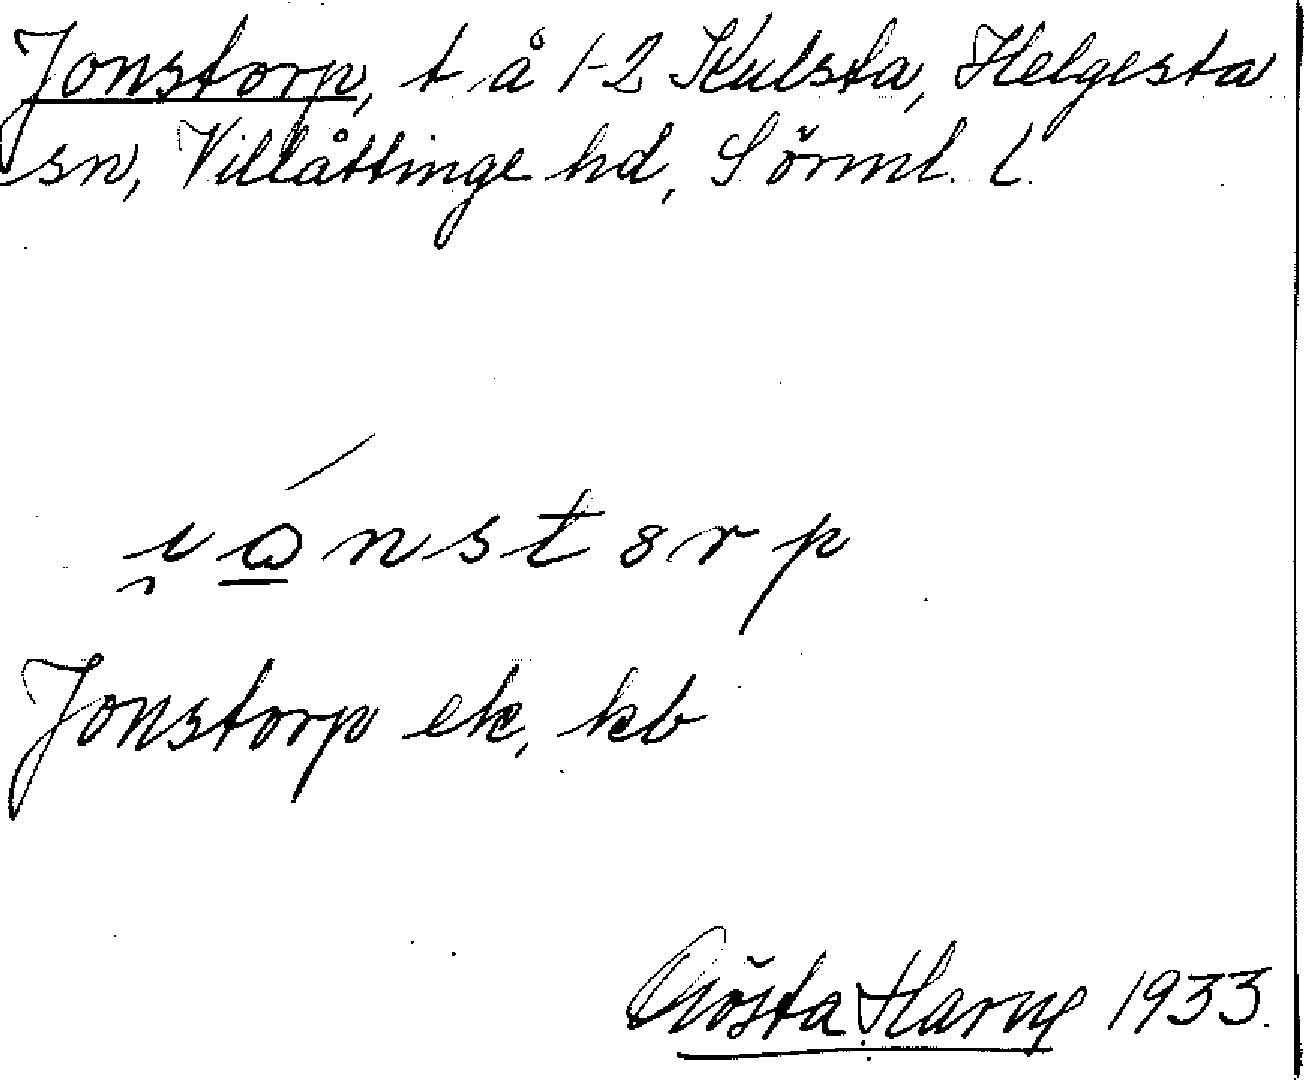 Jonstorp, t å 1-2 Kulsta, Helgesta
sn, Villåttinge hd, Sörml. l.
Jonstorp ek, kb
Gösta Harne 1933.